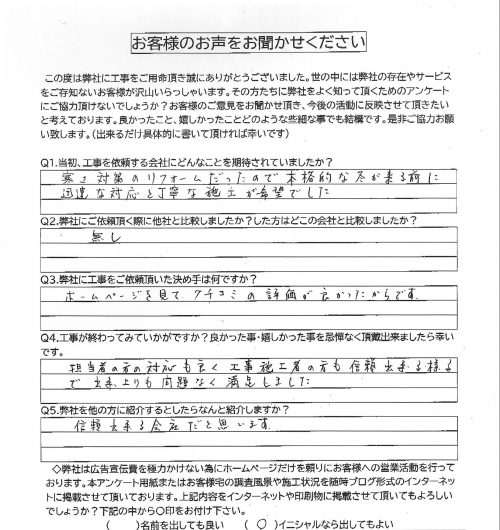 お客様のお声をお聞かせください
この度は弊社に工事をご用命頂き誠にありがとうございました。世の中には弊社の存在やサービス
をご存知ないお客様が沢山いらっしゃいます。その方たちに弊社をよく知って頂くためのアンケート
にご協力頂けないでしょうか？お客様のご意見をお聞かせ頂き、今後の活動に反映させて頂きたい
と考えております。良かったこと、嬉しかったことどのような些細な事でも結構です。是非ご協力お願
い致します。（出来るだけ具体的に書いて頂ければ幸いです）
Q1.当初、工事を依頼する会社にどんなことを期待されていましたか？
寒さ対策のリフォームだったので本格的な冬が来る前に
迅速な対応と丁寧な施工が希望でした
Q2.弊社にご依頼頂く際に他社と比較しましたか？した方はどこの会社と比較しましたか？
無し
Q3.弊社に工事をご依頼頂いた決め手は何ですか？
ホームページを見て クチコミの評価が良かったからです.
Q4.工事が終わってみていかがですか？良かった事・嬉しかった事を忌憚なく頂戴出来ましたら幸い
です。
担当者の方の対応も良く 工事施工者の方も信頼出来る様子
で 出来上りも問題なく満足しました
Q5.弊社を他の方に紹介するとしたらなんと紹介しますか？
信頼出来る会社だと思います.
◇弊社は広告宣伝費を極力かけない為にホームページだけを頼りにお客様への営業活動を行って
おります。本アンケート用紙またはお客様宅の調査風景や施工状況を随時ブログ形式のインターネッ
トに掲載させて頂いております。上記内容をインターネットや印刷物に掲載させて頂いてもよろしい
でしょうか？下記の中から○印をお付け下さい。
（　　）名前を出しても良い　（ ○ ）イニシャルなら出してもよい